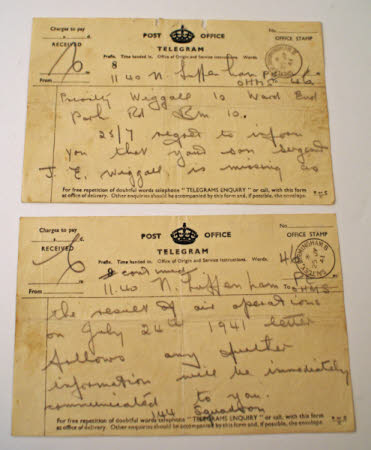 Charges to pay
RECEIVED
POST OFFICE
TELEGRAM
No.
OFFICE STAMP
Prefix. Time handed in. Office of Origin and Service Instructions. Words.
8
11.40 N. Luffenham
OHMS 46
From
Priority Weggall 10 Ward End
Park Rd Bm 10.
25/7 regret to inform
you that your son Sergeant
J. E. Weggall is missing as
For free repetition of doubtful words telephone "TELEGRAMS ENQUIRY" or call, with this form
at office of delivery. Other enquiries should be accompanied by this form and, if possible, the envelope.
Charges to pay
RECEIVED
POST OFFICE
TELEGRAM
No.
OFFICE STAMP
BIRMINGHAM
Prefix. Time handed in. Office of Origin and Service Instructions. Words.
8 continued
46
11.40 N. Luffenham
From
To
OHMS
the result of air operations
on July 24th 1941 letter
follows any further
information will be immediately
communicated to you.
144 Squadron
For free repetition of doubtful words telephone "TELEGRAMS ENQUIRY" or call, with this form
at office of delivery. Other enquiries should be accompanied by this form and, if possible, the envelope.